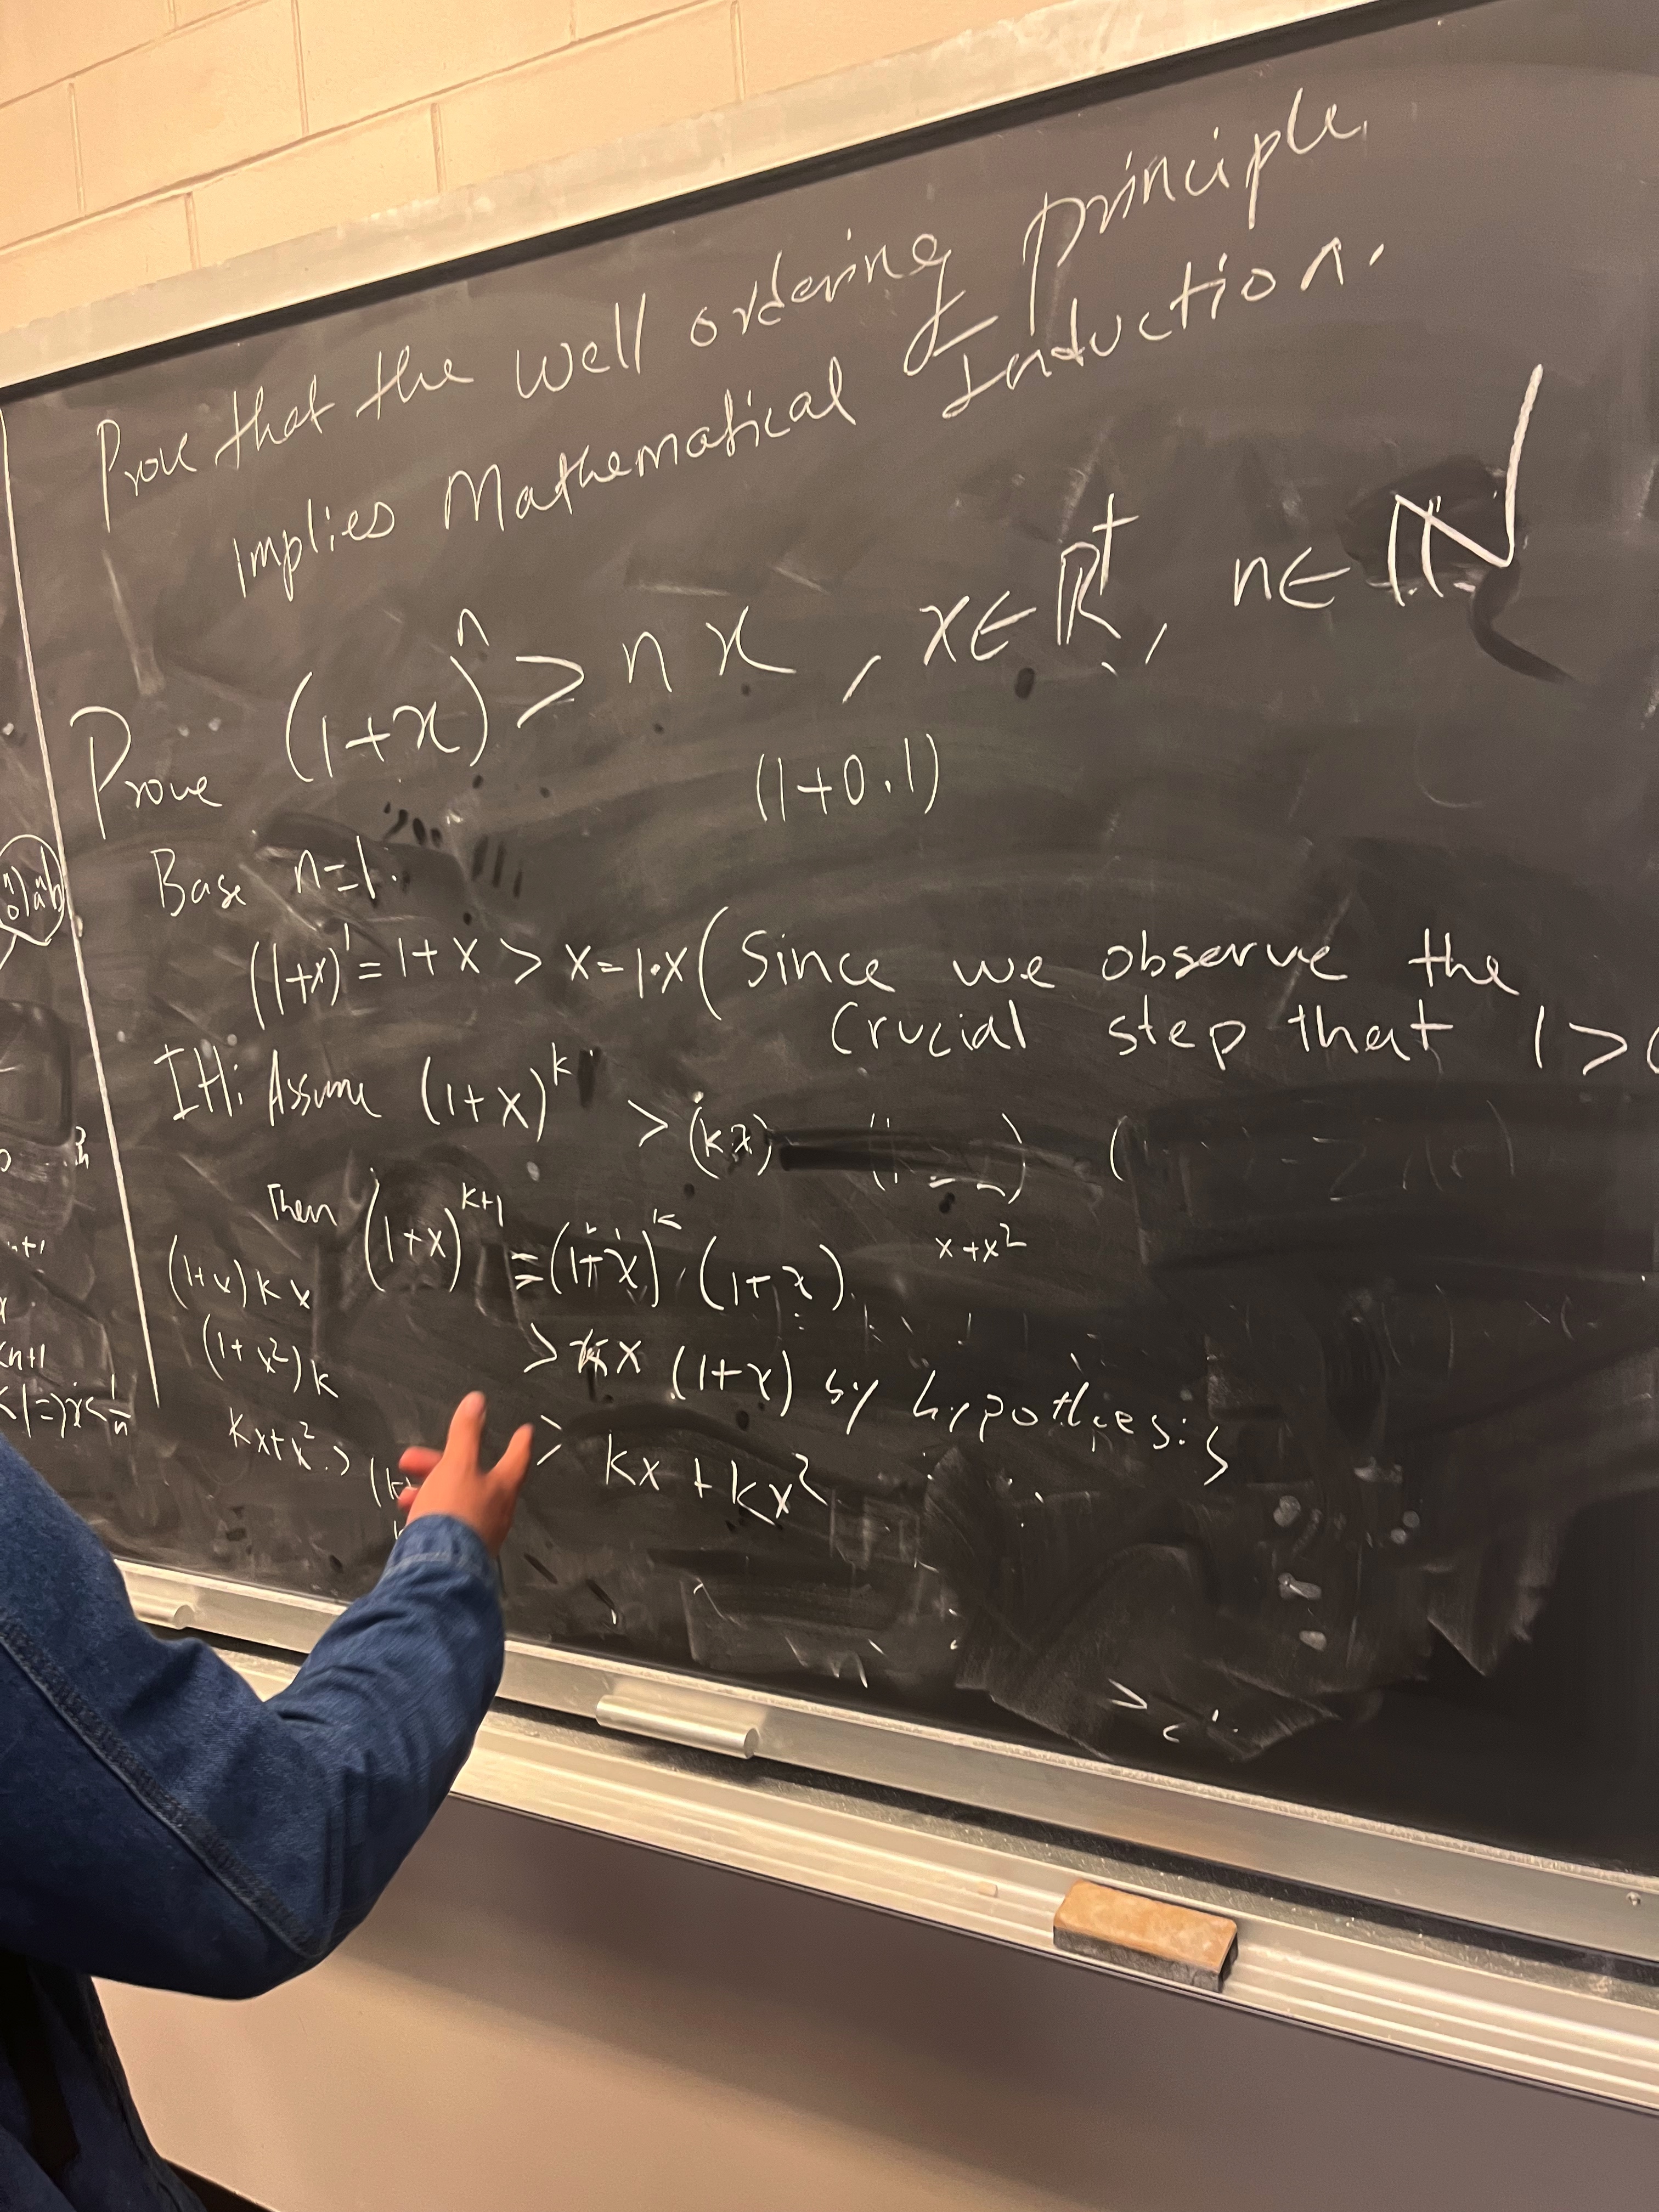 Prove that the well ordering principle
implies Mathematical Induction.
Prove (1+x)^n > n x , x∈ℝ⁺, n∈ ℕ
(1+0.1)
Base n=1.
(1+x)^1 = 1+x > x=1•x (Since we observe the
crucial step that 1>
IH: Assume (1+x)^k > (kx)
Then (1+x)^{k+1} = (1+x)^k · (1+x)
x+x²
> kx (1+x) by hypothesis
> kx + kx²
(1+x)kx
(1+x²)k
kx+x² >